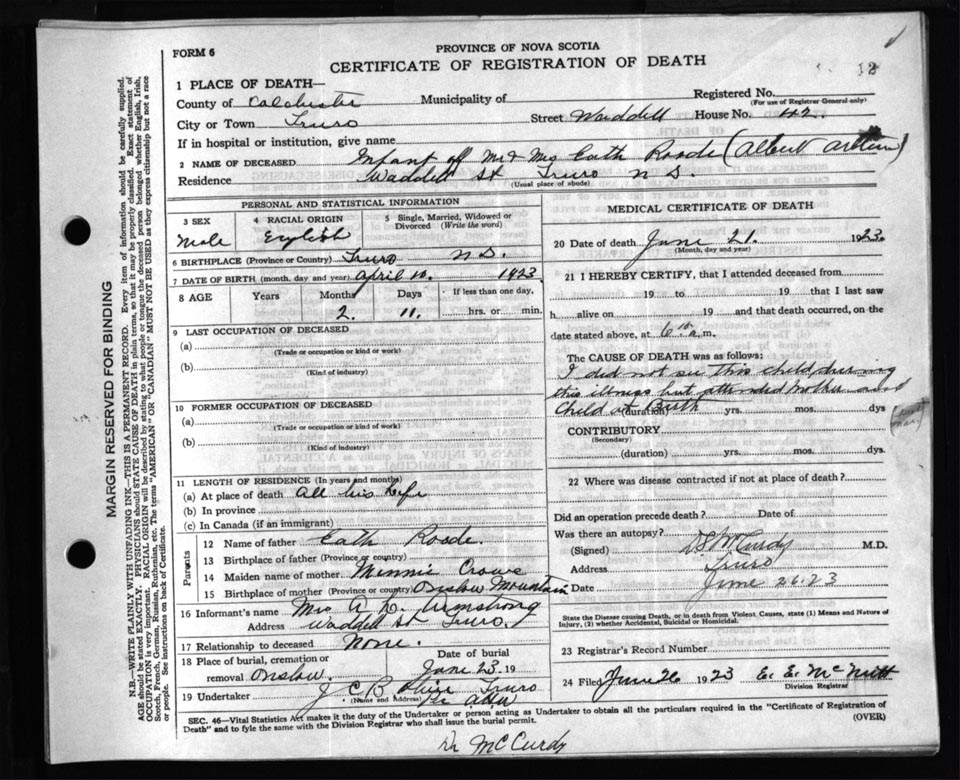 FORM 6
PROVINCE OF NOVA SCOTIA
CERTIFICATE OF REGISTRATION OF DEATH
18
1 PLACE OF DEATH—
County of Colchester Municipality of
Registered No.
(For use of Registrar General only)
City or Town Truro Street Waddell House No. 42.
If in hospital or institution, give name
2 NAME OF DECEASED Infant of Mr & Mrs Eath Roode (Albert)
Residence Waddell St Truro N.S.
(Usual place of abode)
PERSONAL AND STATISTICAL INFORMATION
3 SEX Male
4 RACIAL ORIGIN English
5 Single, Married, Widowed or Divorced (Write the word)
6 BIRTHPLACE (Province or Country) Truro N.S.
7 DATE OF BIRTH (month, day and year) April 10. 1923
8 AGE Years Months Days If less than one day,
2. 11. hrs. or min.
9 LAST OCCUPATION OF DECEASED
(a)
(Trade or occupation or kind or work)
(b)
(Kind of industry)
10 FORMER OCCUPATION OF DECEASED
(a)
(Trade or occupation or kind of work)
(b)
(Kind of industry)
11 LENGTH OF RESIDENCE (In years and months)
(a) At place of death All his Life
(b) In province
(c) In Canada (if an immigrant)
Parents
12 Name of father Eath Roode.
13 Birthplace of father (Province or country)
14 Maiden name of mother Minnie Crowe
15 Birthplace of mother (Province or country) Onslow Mountain
16 Informant's name Mrs A. D. Armstrong
Address Waddell St Truro.
17 Relationship to deceased None.
18 Place of burial, cremation or removal Onslow
Date of burial June 23. 19
19 Undertaker J C B Truro
(Name and Address) Per
MEDICAL CERTIFICATE OF DEATH
20 Date of death June 21. 1923.
(Month, day and year)
21 I HEREBY CERTIFY, that I attended deceased from
19 to 19 that I last saw
h alive on 19 and that death occurred, on the
date stated above, at 6 a.m.
The CAUSE OF DEATH was as follows:
I did not see this child during
this illness but attended Mother and
Child at Birth
(duration) yrs. mos. dys
CONTRIBUTORY
(Secondary)
(duration) yrs. mos. dys.
22 Where was disease contracted if not at place of death?
Did an operation precede death? Date of
Was there an autopsy?
(Signed) McCurdy M.D.
Address Truro
Date June 26. 23
State the Disease causing Death, or in death from Violent Causes, state (1) Means and Nature of Injury, (2) whether Accidental, Suicidal or Homicidal.
23 Registrar's Record Number
24 Filed June 26 1923 E. E. McNutt
Division Registrar
SEC. 46—Vital Statistics Act makes it the duty of the Undertaker or person acting as Undertaker to obtain all the particulars required in the "Certificate of Registration of
Death" and to fyle the same with the Division Registrar who shall issue the burial permit. (OVER)
Dr McCurdy
MARGIN RESERVED FOR BINDING
N.B.—WRITE PLAINLY WITH UNFADING INK—THIS IS A PERMANENT RECORD. Every item of information should be carefully supplied.
AGE should be stated EXACTLY. PHYSICIANS should STATE CAUSE OF DEATH in plain terms, so that it may be properly classified. Exact statement of
OCCUPATION is very important. RACIAL ORIGIN will be described by stating to what people or tongue the deceased person belonged whether English, Irish,
Scotch, French, German, Russian, Ruthenian, etc. The terms "AMERICAN" OR "CANADIAN" MUST NOT BE USED as they express citizenship but not a race
or people. See instructions on back of Certificate.